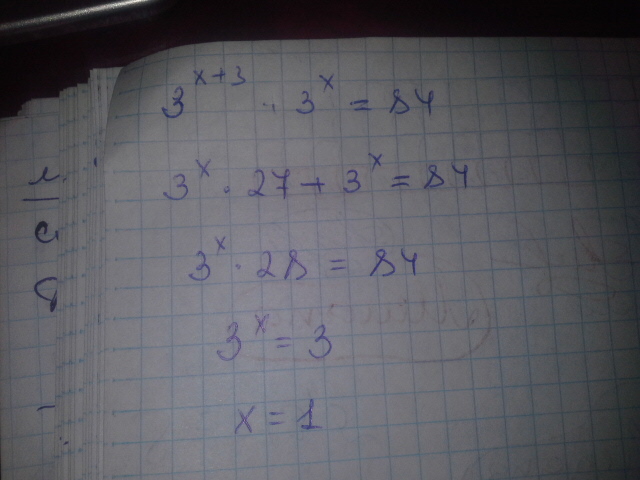 3^{x+3} · 3^x = 84
3^x · 27 + 3^x = 84
3^x · 28 = 84
3^x = 3
x = 1